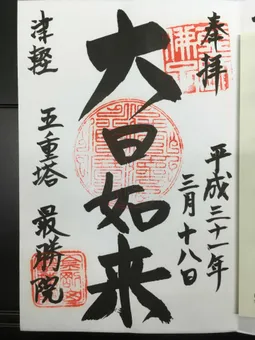 奉拝
平成三十一年
三月十八日
大日如来
津軽
五重塔 最勝院